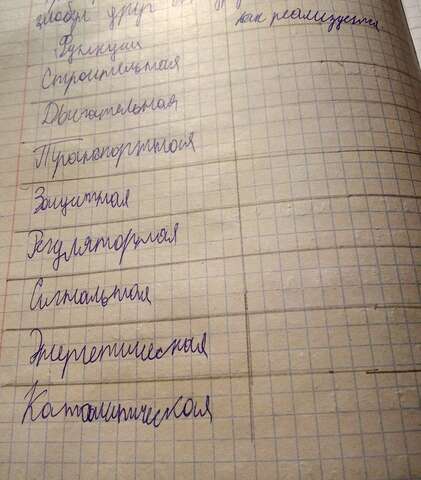 друг
как реализуется
Функции
Строительная
Двигательная
Транспортная
Защитная
Регуляторная
Сигнальная
Энергетическая
Каталитическая